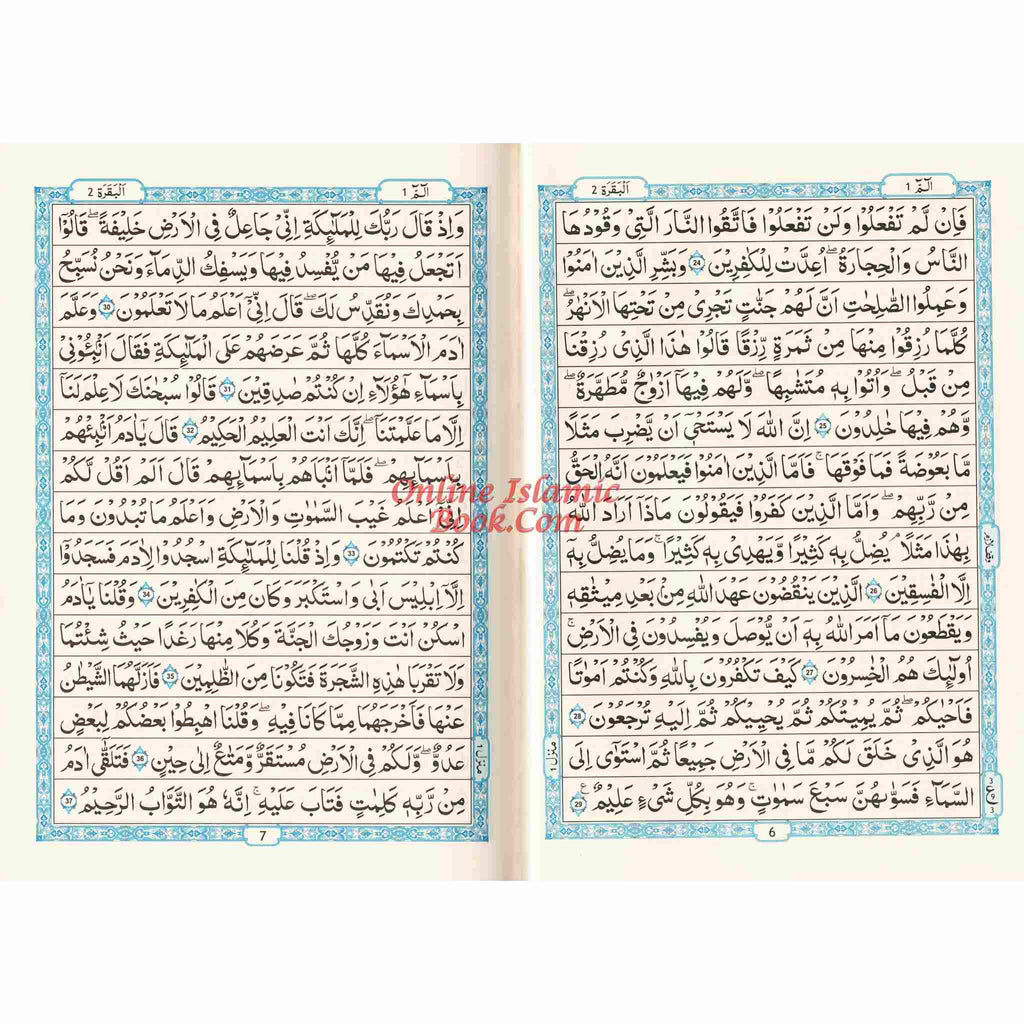 الٓمّٓ 1
اَلْبَقَرَة 2
فَاِنْ لَّمْ تَفْعَلُوْا وَلَنْ تَفْعَلُوْا فَاتَّقُوا النَّارَ الَّتِىْ وَقُوْدُهَا
النَّاسُ وَالْحِجَارَةُ ۖۚ اُعِدَّتْ لِلْكٰفِرِيْنَ 24 وَبَشِّرِ الَّذِيْنَ اٰمَنُوْا
وَعَمِلُوا الصّٰلِحٰتِ اَنَّ لَهُمْ جَنّٰتٍ تَجْرِىْ مِنْ تَحْتِهَا الْاَنْهٰرُ ؕ
كُلَّمَا رُزِقُوْا مِنْهَا مِنْ ثَمَرَةٍ رِّزْقًا قَالُوْا هٰذَا الَّذِىْ رُزِقْنَا
مِنْ قَبْلُ ۙ وَاُتُوْا بِهٖ مُتَشَابِهًا ؕ وَّلَهُمْ فِيْهَآ اَزْوَاجٌ مُّطَهَّرَةٌ ۙ
وَّهُمْ فِيْهَا خٰلِدُوْنَ 25 اِنَّ اللّٰهَ لَا يَسْتَحْىٖٓ اَنْ يَّضْرِبَ مَثَلًا
مَّا بَعُوْضَةً فَمَا فَوْقَهَا ؕ فَاَمَّا الَّذِيْنَ اٰمَنُوْا فَيَعْلَمُوْنَ اَنَّهُ الْحَقُّ
مِنْ رَّبِّهِمْ ۚ وَاَمَّا الَّذِيْنَ كَفَرُوْا فَيَقُوْلُوْنَ مَاذَآ اَرَادَ اللّٰهُ
بِهٰذَا مَثَلًا ۘ يُضِلُّ بِهٖ كَثِيْرًا وَّيَهْدِىْ بِهٖ كَثِيْرًا ؕ وَمَا يُضِلُّ بِهٖٓ
اِلَّا الْفٰسِقِيْنَ 26 الَّذِيْنَ يَنْقُضُوْنَ عَهْدَ اللّٰهِ مِنْۢ بَعْدِ مِيْثَاقِهٖ
وَيَقْطَعُوْنَ مَآ اَمَرَ اللّٰهُ بِهٖٓ اَنْ يُّوْصَلَ وَيُفْسِدُوْنَ فِى الْاَرْضِ ؕ
اُولٰٓئِكَ هُمُ الْخٰسِرُوْنَ 27 كَيْفَ تَكْفُرُوْنَ بِاللّٰهِ وَكُنْتُمْ اَمْوَاتًا
فَاَحْيَاكُمْ ۚ ثُمَّ يُمِيْتُكُمْ ثُمَّ يُحْيِيْكُمْ ثُمَّ اِلَيْهِ تُرْجَعُوْنَ 28
هُوَ الَّذِىْ خَلَقَ لَكُمْ مَّا فِى الْاَرْضِ جَمِيْعًا ثُمَّ اسْتَوٰٓى اِلَى
السَّمَآءِ فَسَوّٰىهُنَّ سَبْعَ سَمٰوٰتٍ ؕ وَهُوَ بِكُلِّ شَىْءٍ عَلِيْمٌ 29
منزل ١
6
الٓمّٓ 1
اَلْبَقَرَة 2
وَاِذْ قَالَ رَبُّكَ لِلْمَلٰٓئِكَةِ اِنِّىْ جَاعِلٌ فِى الْاَرْضِ خَلِيْفَةً ؕ قَالُوْٓا
اَتَجْعَلُ فِيْهَا مَنْ يُّفْسِدُ فِيْهَا وَيَسْفِكُ الدِّمَآءَ وَنَحْنُ نُسَبِّحُ
بِحَمْدِكَ وَنُقَدِّسُ لَكَ ؕ قَالَ اِنِّىْٓ اَعْلَمُ مَا لَا تَعْلَمُوْنَ 30 وَعَلَّمَ
اٰدَمَ الْاَسْمَآءَ كُلَّهَا ثُمَّ عَرَضَهُمْ عَلَى الْمَلٰٓئِكَةِ فَقَالَ اَنْۢبِـُٔوْنِىْ
بِاَسْمَآءِ هٰٓؤُلَآءِ اِنْ كُنْتُمْ صٰدِقِيْنَ 31 قَالُوْا سُبْحٰنَكَ لَا عِلْمَ لَنَآ
اِلَّا مَا عَلَّمْتَنَا ؕ اِنَّكَ اَنْتَ الْعَلِيْمُ الْحَكِيْمُ 32 قَالَ يٰٓاٰدَمُ اَنْۢبِئْهُمْ
بِاَسْمَآئِهِمْ ۚ فَلَمَّآ اَنْۢبَاَهُمْ بِاَسْمَآئِهِمْ قَالَ اَلَمْ اَقُلْ لَّكُمْ
اِنِّىْٓ اَعْلَمُ غَيْبَ السَّمٰوٰتِ وَالْاَرْضِ وَاَعْلَمُ مَا تُبْدُوْنَ وَمَا
كُنْتُمْ تَكْتُمُوْنَ 33 وَاِذْ قُلْنَا لِلْمَلٰٓئِكَةِ اسْجُدُوْا لِاٰدَمَ فَسَجَدُوْٓا
اِلَّآ اِبْلِيْسَ اَبٰى وَاسْتَكْبَرَ وَكَانَ مِنَ الْكٰفِرِيْنَ 34 وَقُلْنَا يٰٓاٰدَمُ
اسْكُنْ اَنْتَ وَزَوْجُكَ الْجَنَّةَ وَكُلَا مِنْهَا رَغَدًا حَيْثُ شِئْتُمَا
وَلَا تَقْرَبَا هٰذِهِ الشَّجَرَةَ فَتَكُوْنَا مِنَ الظّٰلِمِيْنَ 35 فَاَزَلَّهُمَا الشَّيْطٰنُ
عَنْهَا فَاَخْرَجَهُمَا مِمَّا كَانَا فِيْهِ ۪ وَقُلْنَا اهْبِطُوْا بَعْضُكُمْ لِبَعْضٍ
عَدُوٌّ ۚ وَلَكُمْ فِى الْاَرْضِ مُسْتَقَرٌّ وَّمَتَاعٌ اِلٰى حِيْنٍ 36 فَتَلَقّٰٓى اٰدَمُ
مِنْ رَّبِّهٖ كَلِمٰتٍ فَتَابَ عَلَيْهِ ؕ اِنَّهٗ هُوَ التَّوَّابُ الرَّحِيْمُ 37
منزل ١
7
Online Islamic
Book.Com